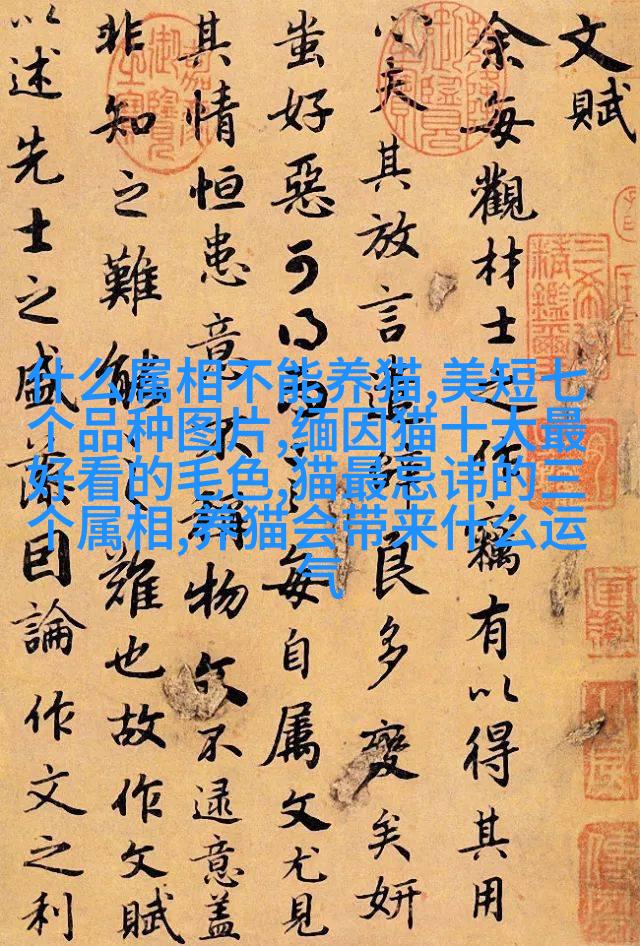 文賦
余每觀材士之作竊有以得其用
心夫其放言遣辭良多變矣妍
蚩好惡可得而言每自属文尤見
其情恒患意不稱物文不逮意盖
非知之難能之難也故作文賦
以述先士之盛藻因論作文之利
什么属相不能养猫,美短七
个品种图片,缅因猫十大最
好看的毛色,猫最忌讳的三
个属相,养猫会带来什么运
气